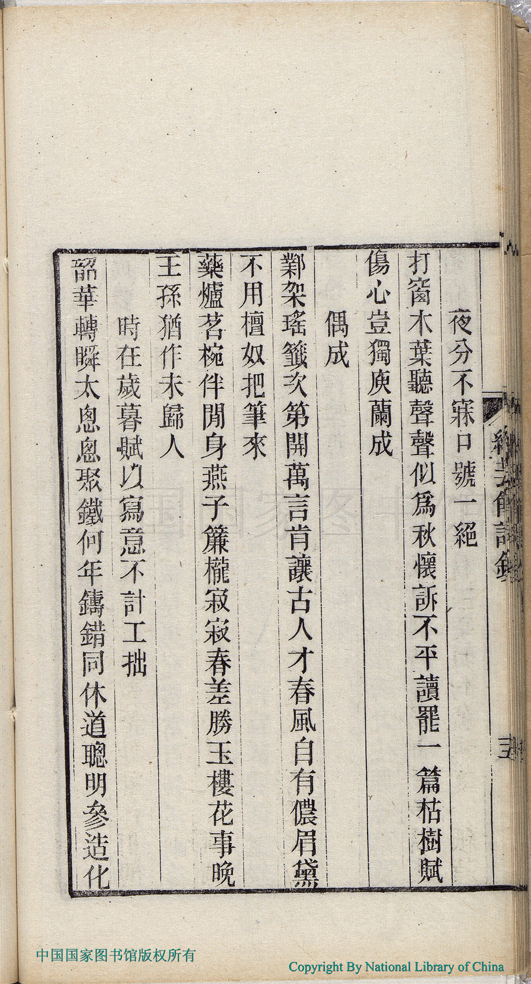 夜分不寐口號一絕
打窗木葉聽聲聲似爲秋懷訴不平讀罷一篇枯樹賦
傷心豈獨庾蘭成
偶成
鄴架瑤籤次第開萬言肯讓古人才春風自有儂眉黛
不用檀奴把筆來
藥爐茗椀伴閒身燕子簾櫳寂寂春差勝玉樓花事晚
王孫猶作未歸人
時在歲暮賦以寫意不計工拙
韶華轉瞬太悤悤聚鐵何年鑄錯同休道聰明參造化
中国国家图书馆版权所有
Copyright By National Library of China